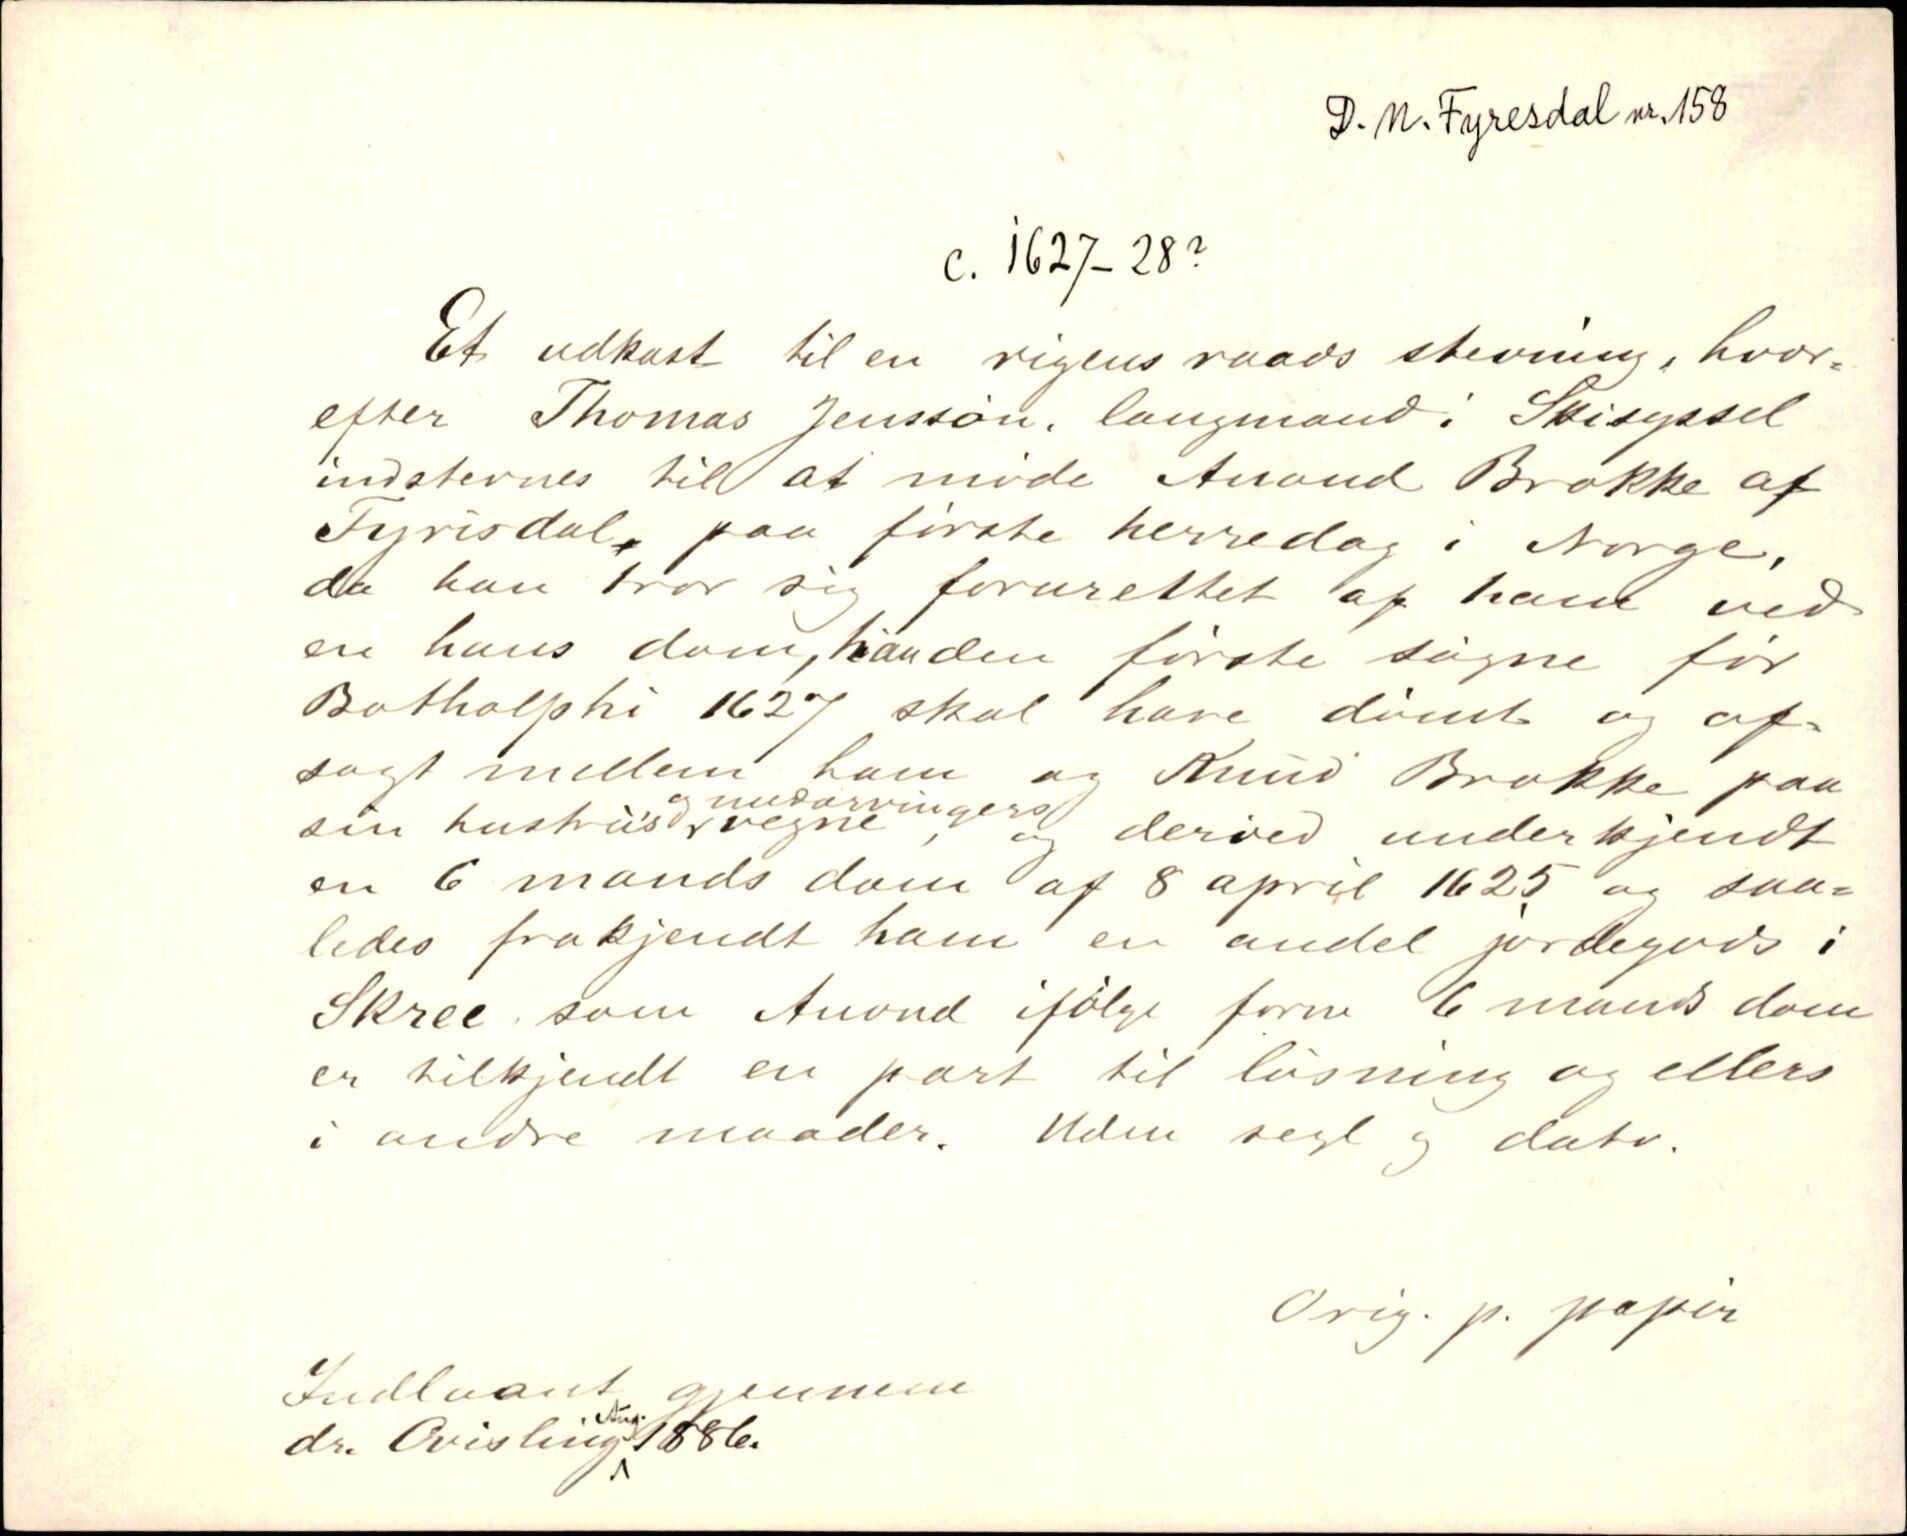 D. N. Fyresdal nr. 158
c. 1627–28?
Et udkast til en rigens raads stevning, hvor-
efter Thomas Jenssøn, laugmand i Skisyssel
indstevnes til at møde Anond Brokke af
Fyrisdal, paa første herredag i Norge,
da han tror sig forurettet af ham ved
en hans dom, han den første søgne før
Bothalphi 1627 skal have dømt og af-
sagt mellem ham og Knud Brokke paa
sin hustrus og medarvingers vegne, og derved underkjendt
en 6 mands dom af 8 april 1625 og saa-
ledes frakjendt ham en andel jordegods i
Skree som Anond ifølge forne 6 mands dom
er tilkjendt en part til løsning og ellers
i andre maader. Uden segl og dato.
Orig. p. papir
Indlaant gjennem
dr. Qvisling Aug. 1886.